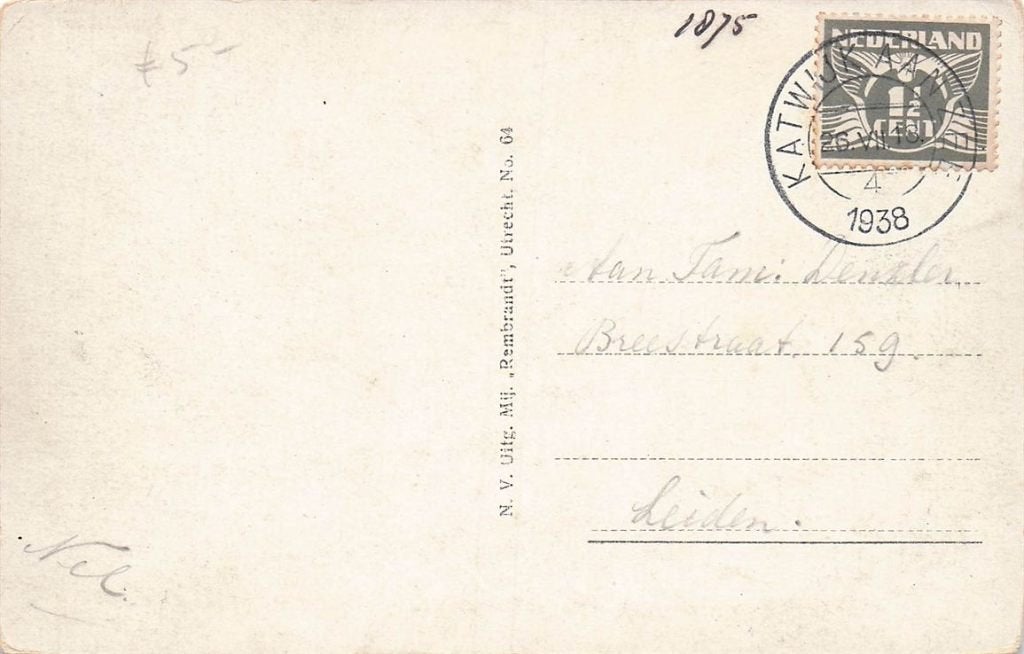 1875
f 5-
NEDERLAND
1½
CENT
KATWIJK AAN ZEE
26.VII.18.
4
1938
N. V. Uitg. Mij. „Rembrandt", Utrecht. No. 64
Aan Fam: Denkler
Breestraat. 159.
Leiden.
Nel.